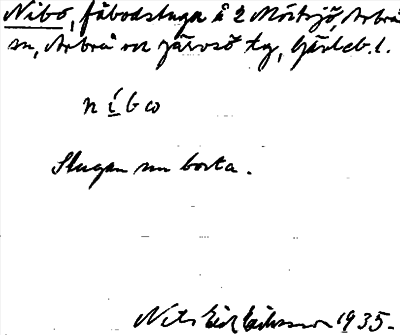 Nibo, fäbodstuga å 2 Mörtsjö, Arbrå
sn, Arbrå ock Järvsö tg, Gävleb. l.
n í b ω
Stugan nu borta.
Nils Erik Eriksson 1935.